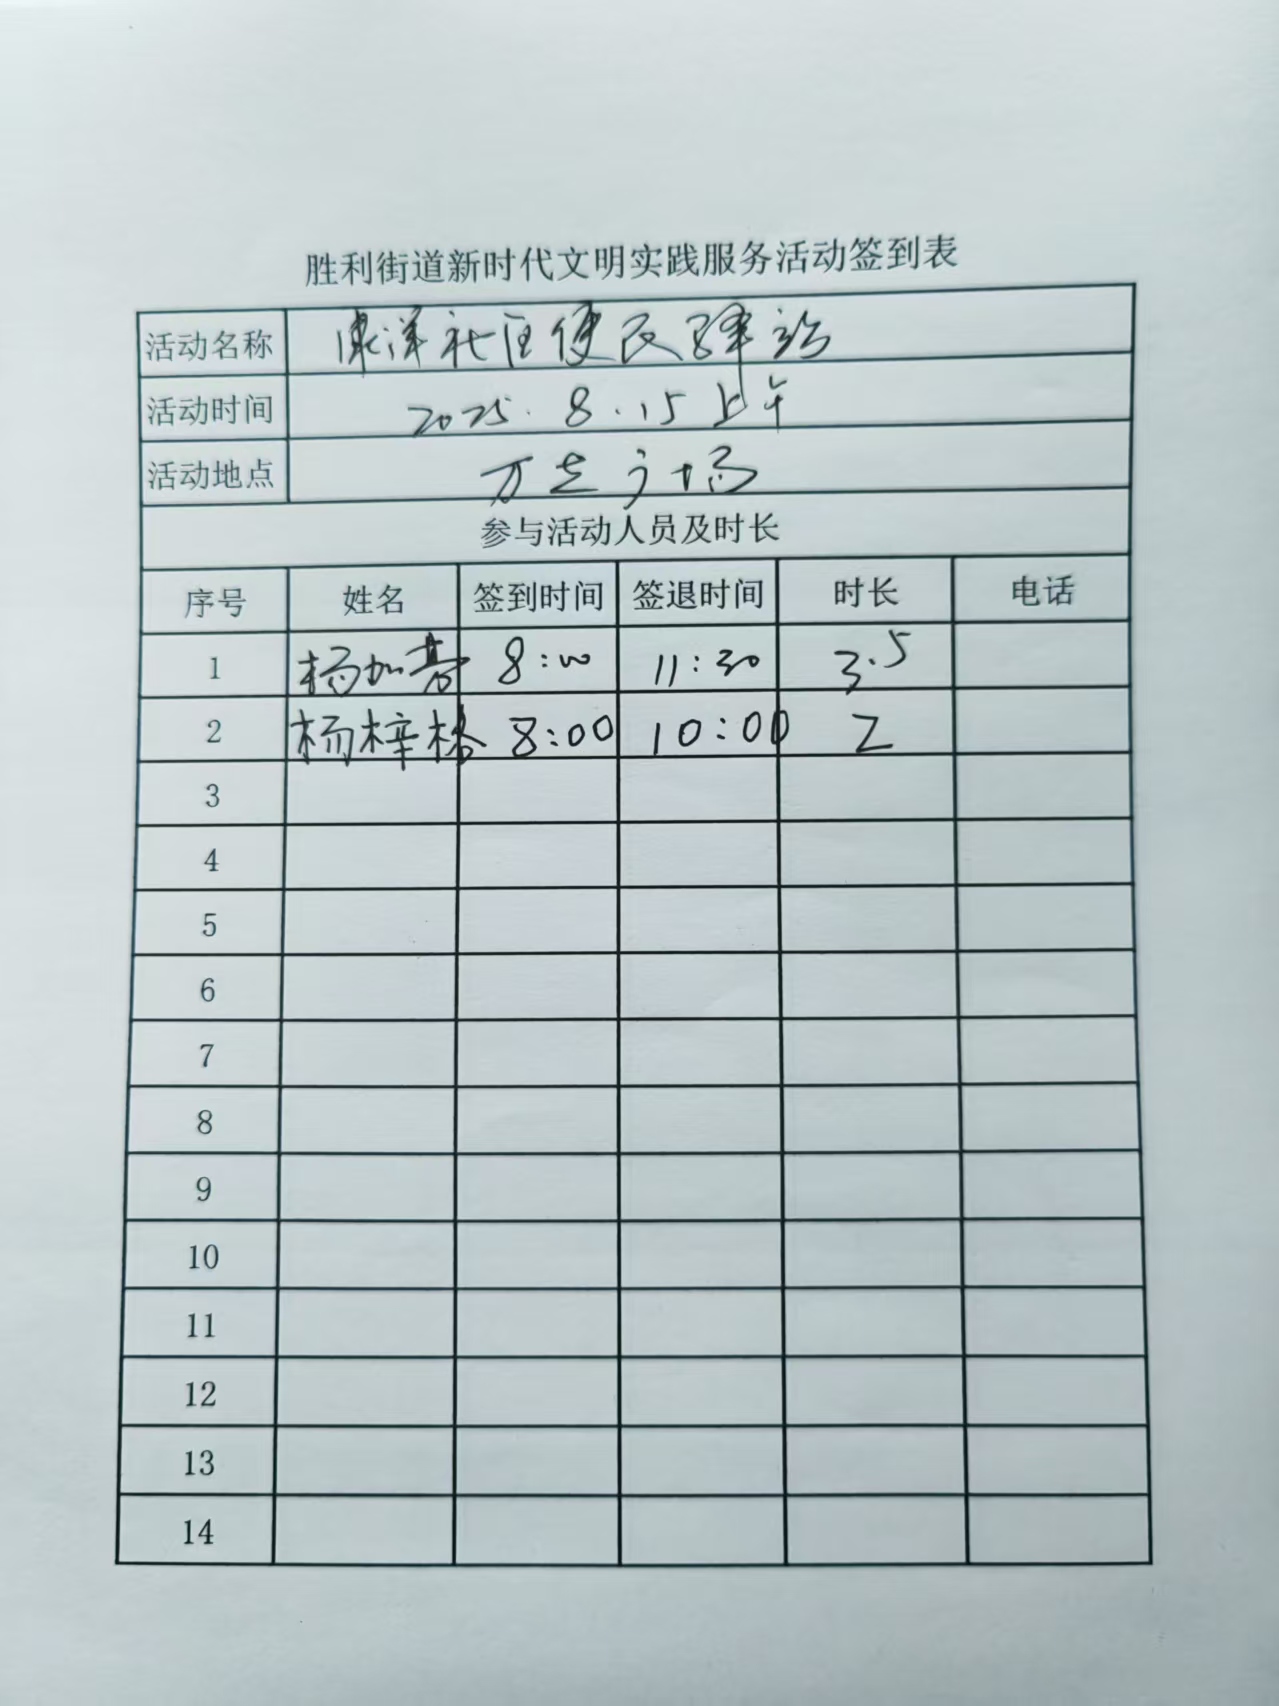 胜利街道新时代文明实践服务活动签到表
活动名称 康洋社区便民驿站
活动时间 2025.8.15上午
活动地点 万达广场
参与活动人员及时长
序号 姓名 签到时间 签退时间 时长 电话
1 杨加 8:00 11:30 3.5
2 杨梓格 8:00 10:00 2
3
4
5
6
7
8
9
10
11
12
13
14